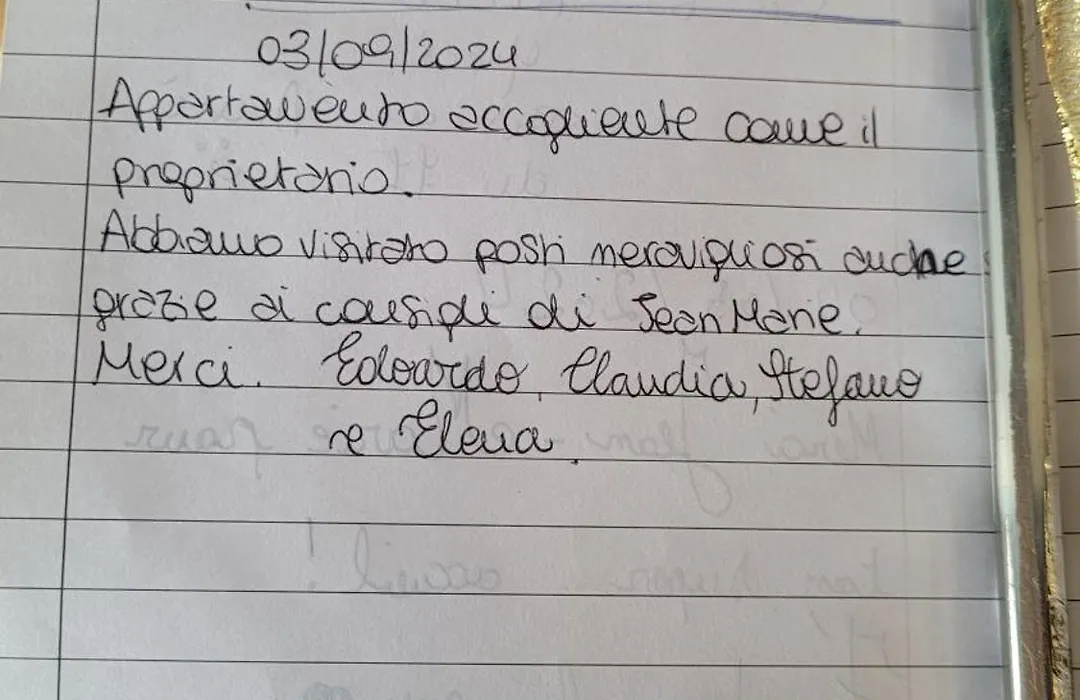 03/09/2024
Appartamento accogliente come il
proprietario.
Abbiamo visitato posti meravigliosi anche
grazie ai consigli di Jean Marie.
Merci. Edoardo, Claudia, Stefano
e Elena.